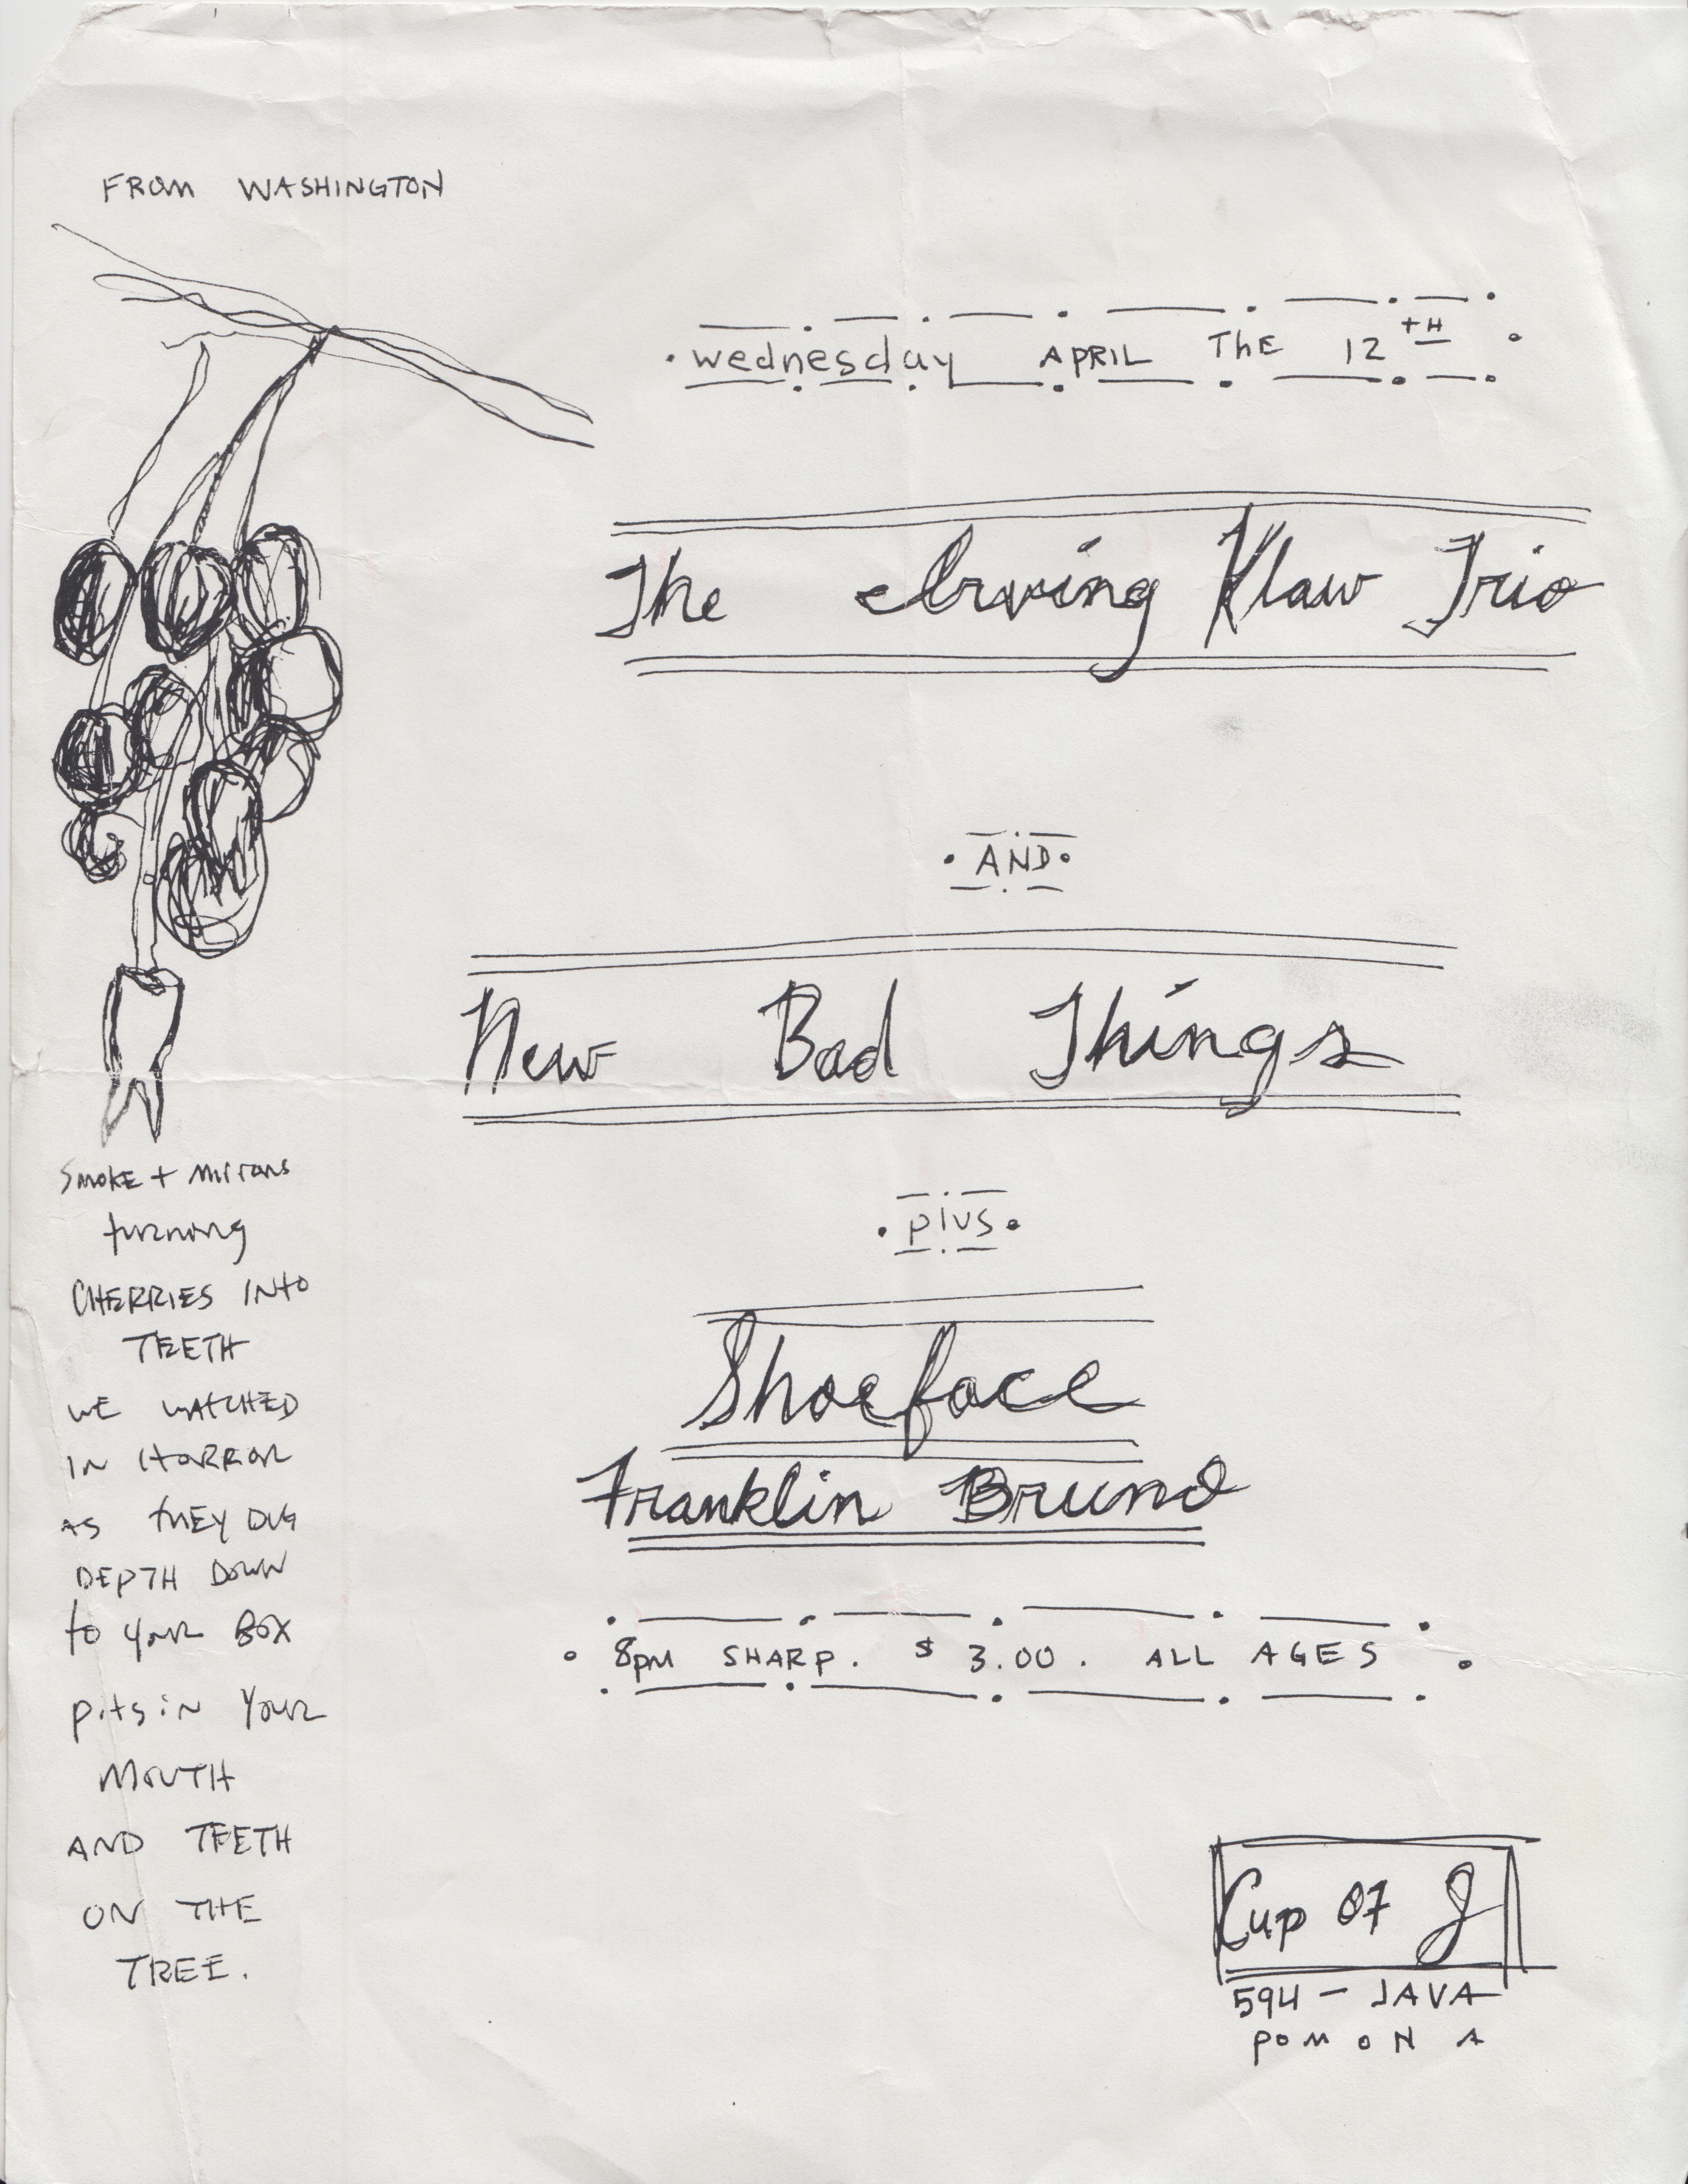 FROM WASHINGTON
wednesday APRIL The 12TH
The Irving Klaw Trio
AND
New Bad Things
plus
Shoeface
Franklin Bruno
8pm SHARP. $3.00. ALL AGES
SMOKE + MIrrors
turning
CHERRIES INTO
TEETH
WE WATCHED
IN HORROR
AS THEY DUG
DEPTH DOWN
to your BOX
pits in Your
MOUTH
AND TEETH
ON THE
TREE.
Cup Of J
594 - JAVA
POMONA